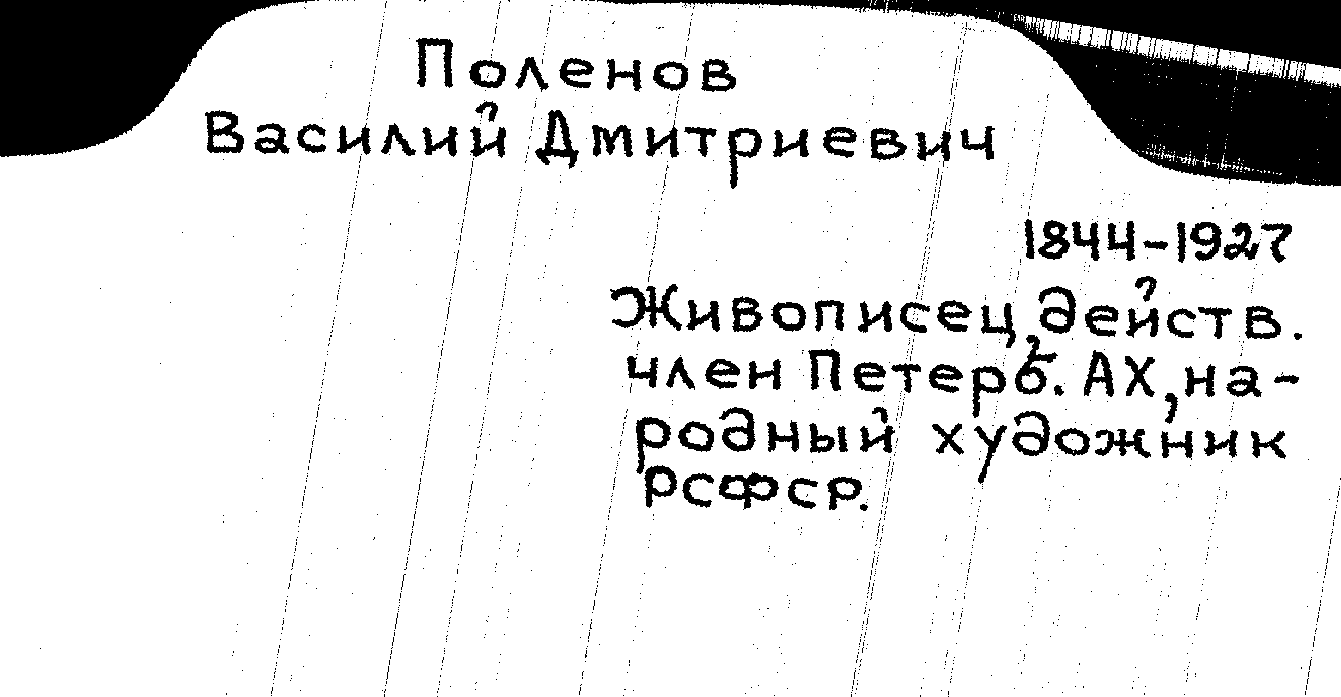 Поленов
Василий Дмитриевич
1844-1927
Живописец, действ.
член Петерб. АХ, на-
родный художник
РСФСР.